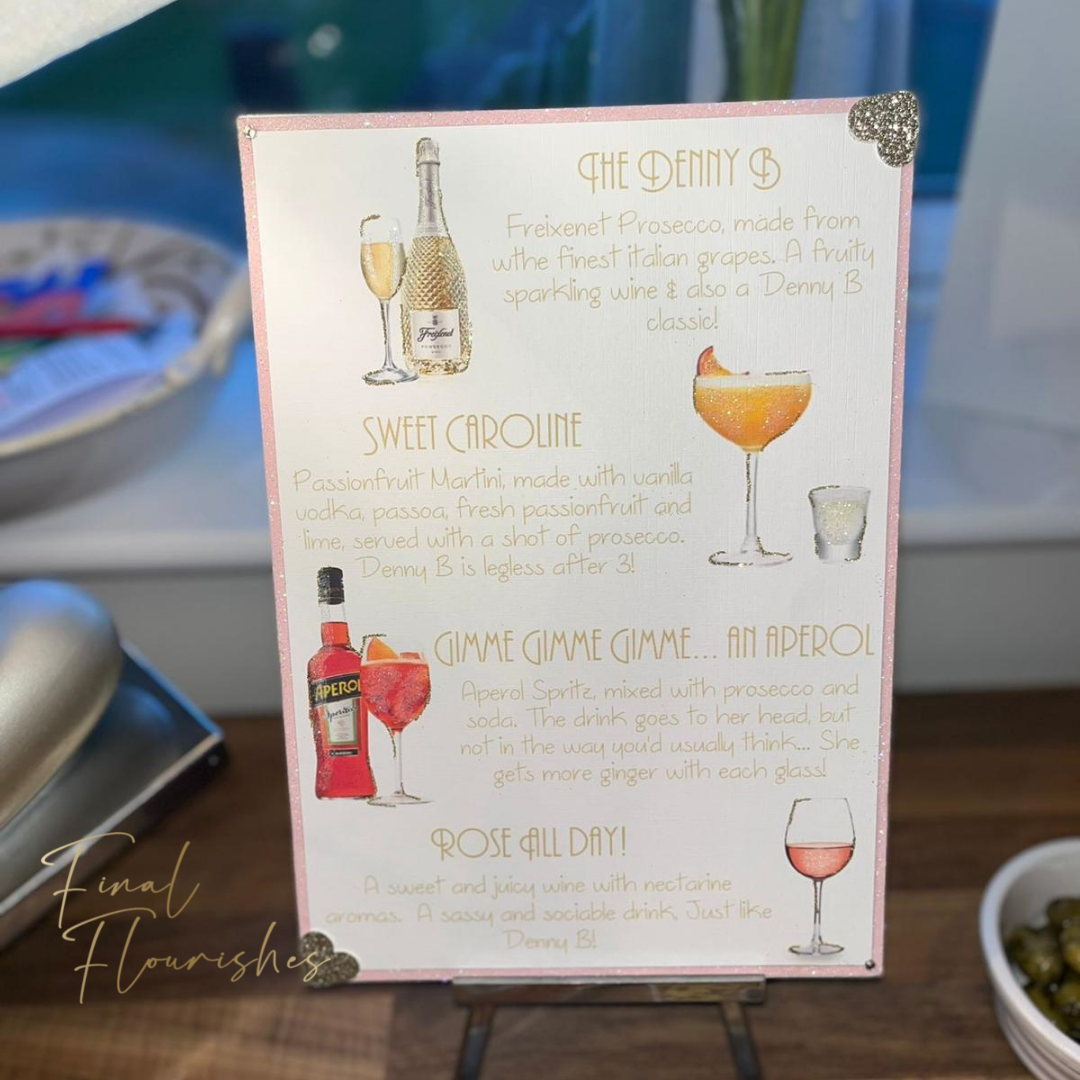 THE DENNY B
Freixenet Prosecco, made from
wthe finest italian grapes. A fruity
sparkling wine & also a Denny B
classic!
Freixenet
PROSECCO
SWEET CAROLINE
Passionfruit Martini, made with vanilla
vodka, passoa, fresh passionfruit and
lime, served with a shot of prosecco.
Denny B is legless after 3!
GIMME GIMME GIMME... AN APEROL
APEROL
Aperol Spritz, mixed with prosecco and
soda. The drink goes to her head, but
not in the way you'd usually think... She
gets more ginger with each glass!
ROSE ALL DAY!
A sweet and juicy wine with nectarine
aromas. A sassy and sociable drink, Just like
Denny B!
Final
Flourishes